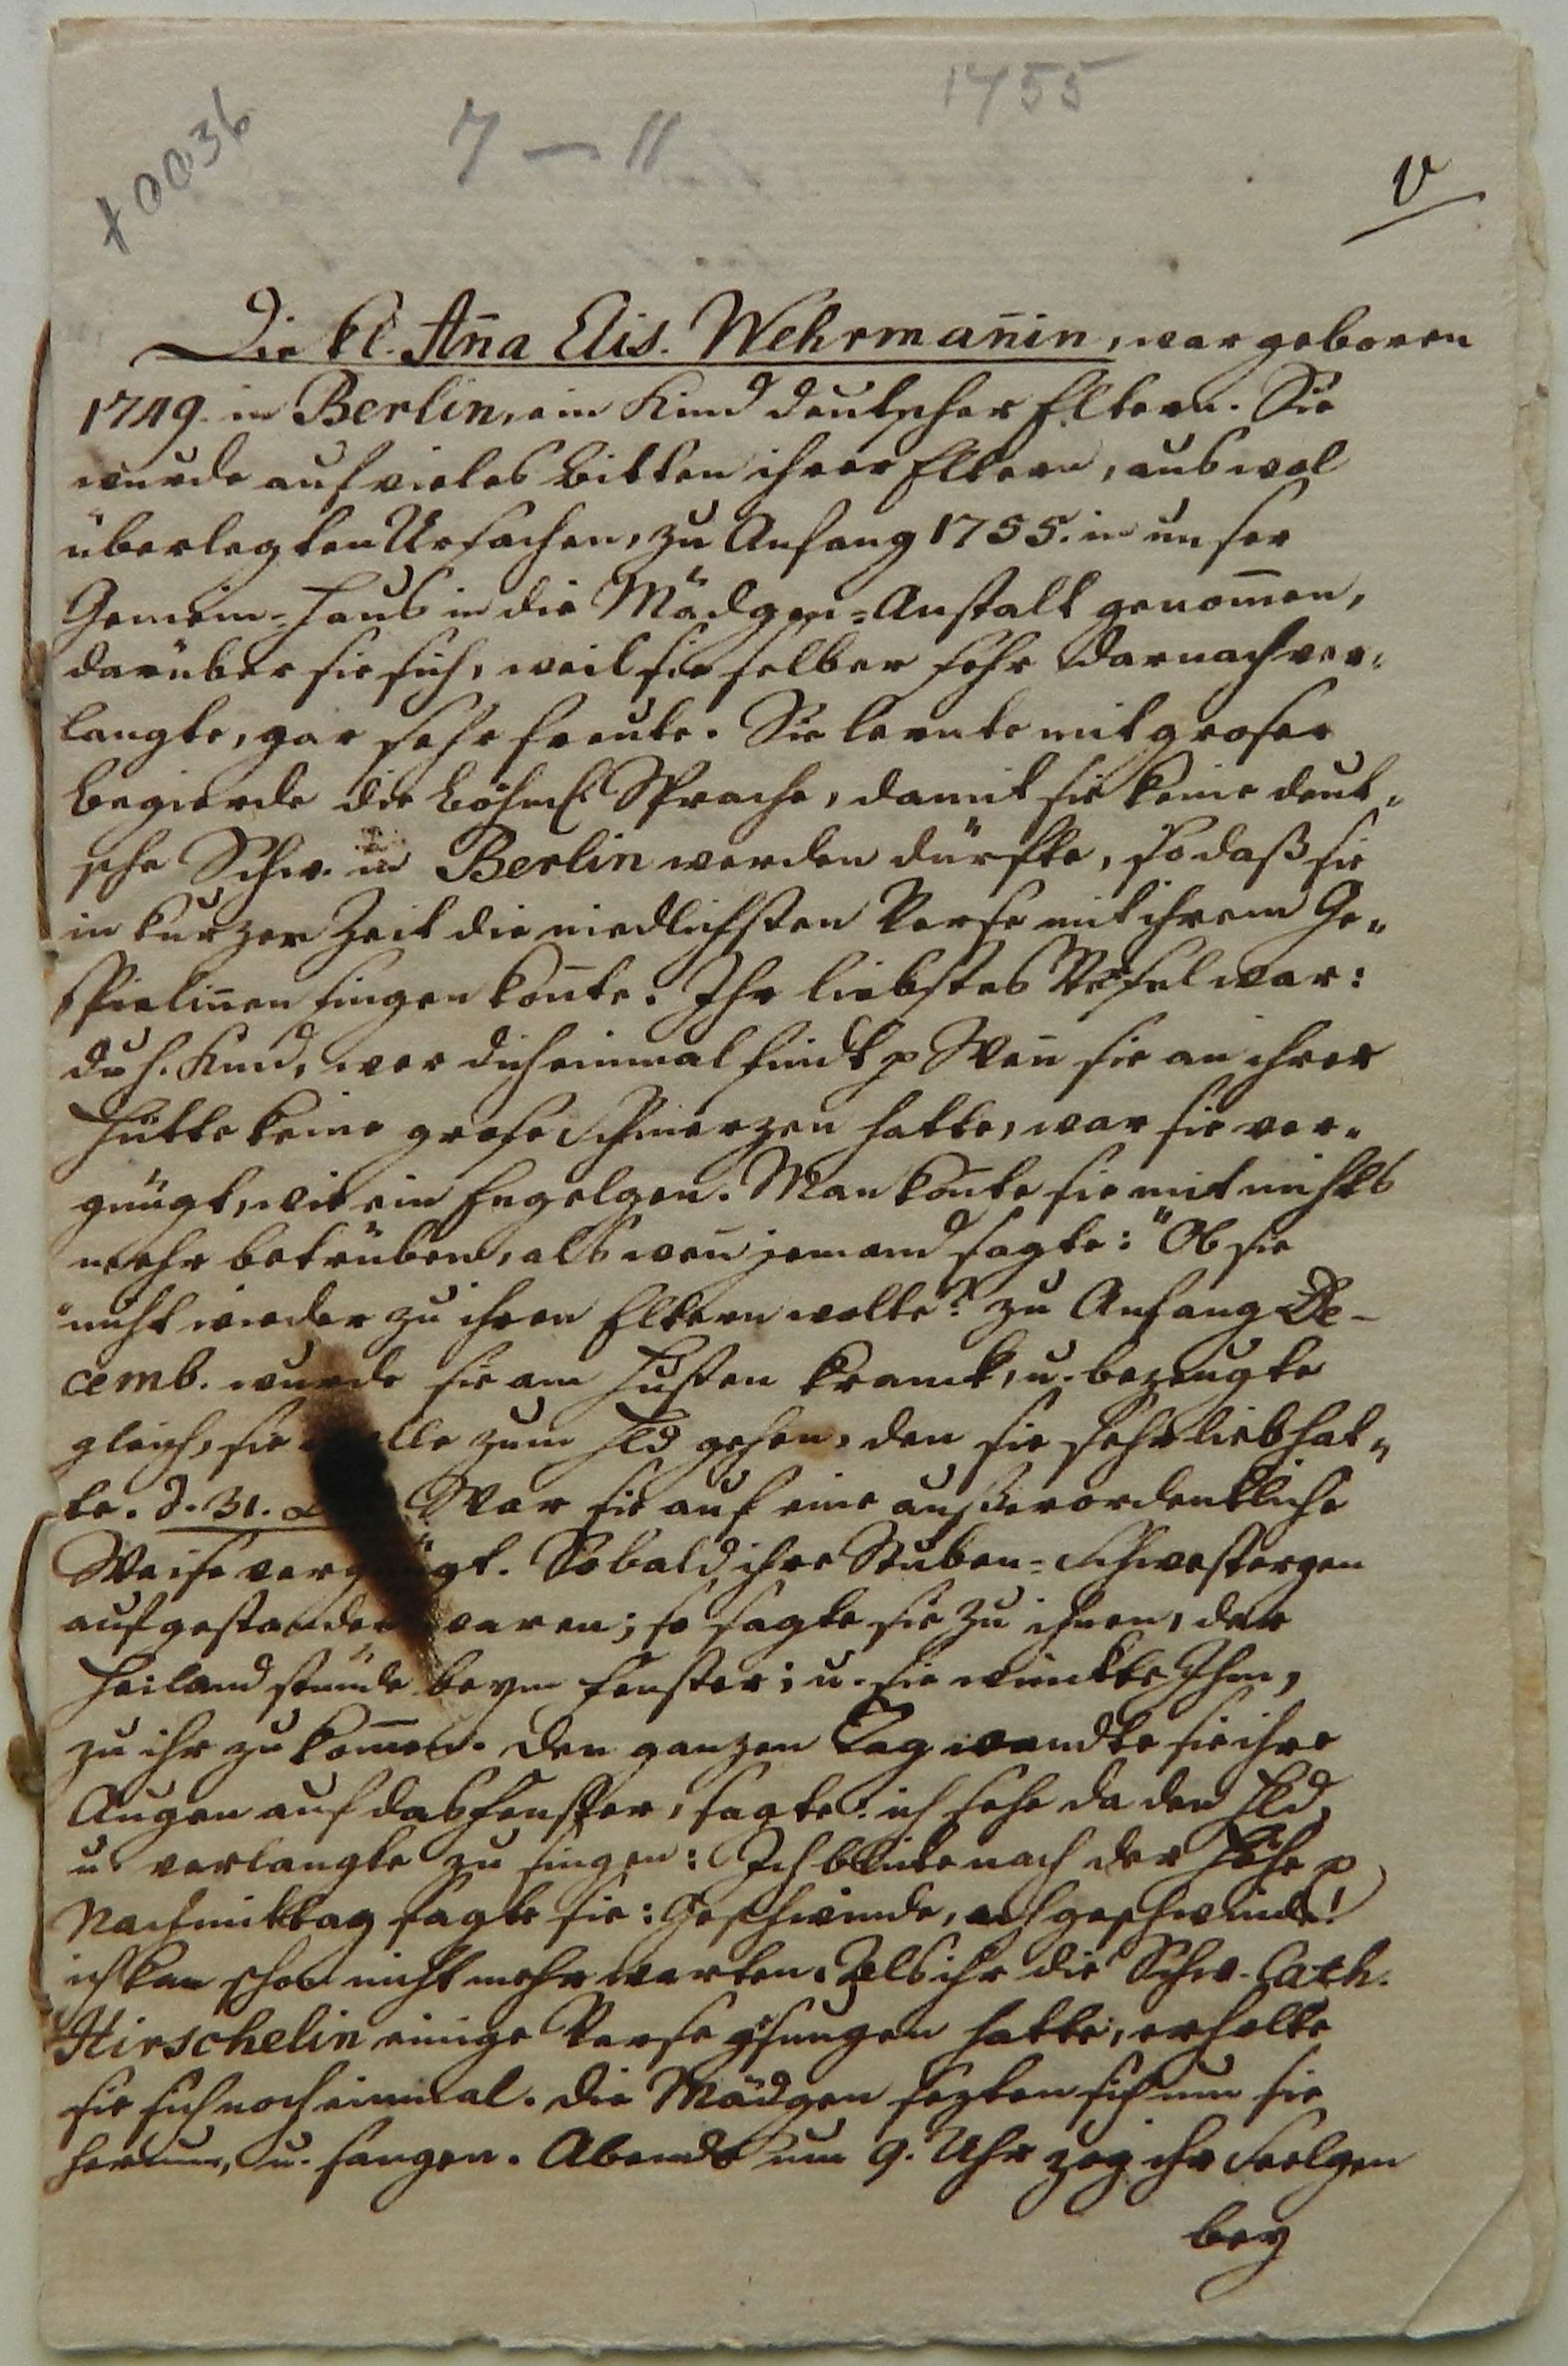 10036
7 — 11
1755
V
Die kl. Aña Elis. Wehrmañin, war geboren
1749. in Berlin, ein Kind deutscher Eltern. Sie
wurde auf vieles bitten ihrer Eltern, aus wol
überlegten Ursachen, zu Anfang 1755. in unser
Gemein-Haus in die Mädgen-Anstalt genom̄en,
darüber sie sich, weil sie selber sehr darnach ver-
langte, gar sehr freute. Sie lernte mit groser
begierde die böhmf. Sprache, damit sie keine deut-
sche Schw. in Berlin werden dürfte, so daß sie
in kurzer Zeit die niedlichsten Verse mit ihrem Ge-
spieliñen singen koñte. Ihr liebstes Versel war:
du h. Kind, wer dich einmal findt p Weñ sie an ihrer
Hütte keine grose Schmerzen hatte, war sie ver-
gnügt, wie ein Engelgen. Man koñte sie mit nichts
mehr betrüben, als weñ jemand sagte: "Ob sie
"nicht wieder zu ihren Eltern wolte? zu Anfang De-
cemb. wurde sie am Husten kranck, u. bezeugte
gleich, sie lle zum Hld gehen, den sie sehr lieb hat-
te. d. 31. War sie auf eine außerordentliche
Weise verg gt. Sobald ihre Stuben-Schwestergen
aufgestanden waren; so sagte sie zu ihnen, der
Heiland stünde beym Fenster; u. sie winckte Ihm,
zu ihr zu kom̄en. Den ganzen Tag wandte sie ihre
Augen auf das Fenster, sagte: ich sehe da den Hld,
u. verlangte zu singen: Ich blicke nach der Höhe p
Nachmittag sagte sie: Geschwinde, ach geschwinde!
ich kan schon nicht mehr warten. Als ihr die Schw. Cath.
Hirschelin einige Verse gesungen hatte, erholte
sie sich noch einmal. Die Mädgen sezten sich um sie
herum, u. sangen. Abends um 9. Uhr zog ihr Seelgen
bey